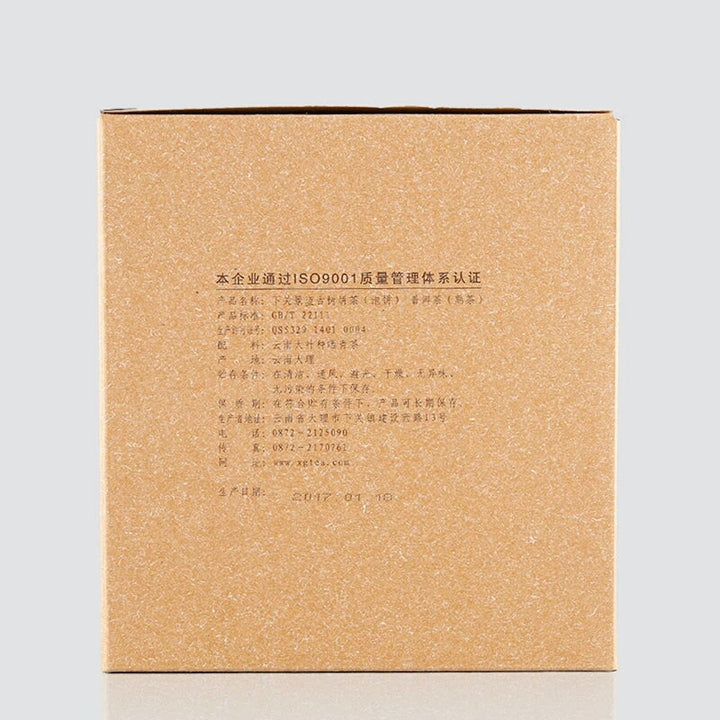 本企业通过ISO9001质量管理体系认证
产品名称: 下关景迈古树饼茶(泡饼) 普洱茶(熟茶)
产品标准: GB/T 22111
生产许可证号: QS5329 1401 0004
配 料: 云南大叶种晒青茶
产 地: 云南大理
贮存条件: 在清洁、通风、避光、干燥、无异味、
无污染的条件下保存。
保 质 期: 在符合贮存条件下,产品可长期保存。
生产者地址: 云南省大理市下关镇建设东路13号
电 话: 0872-2125090
传 真: 0872-2170761
网 址: www.xgtea.com
生产日期: 2017 01 18